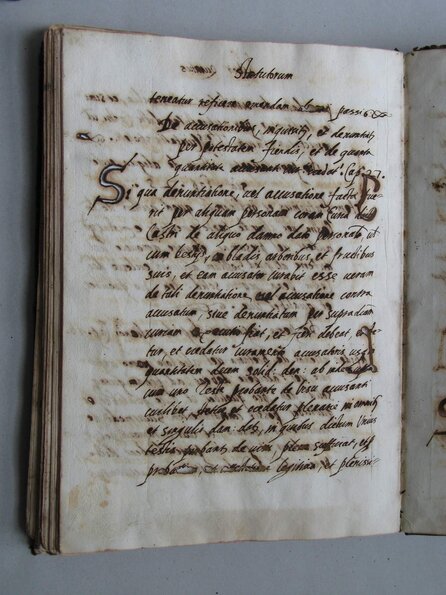 Statutorum
teneatur reficere emendam passis
De accusationibus, inquerit, et denuntiat,
per potestatem fiendis, et de quanta
quantitate Cap. 27.
Si qua denuntiatione, vel accusatione facta fue
rit per aliquam personam coram Curia
Castri de aliquo damno dato personalit vel
cum bestijs, in bladis arboribus, et fructibus
suis, et eam accusator iurabit esse veram
de tali denuntiatione vel accusatione contra
accusatum, sive denuntiatum per supradictam
curiam fiat, et fieri debeat
tur, et credatur iuramento accusatoris usque
quantitatem decem solid: den: ab inde
cum uno Teste probante de visu accusanti
cuilibet, et credatur plenarie in omnibus
et singulis dam: datis, in quibus dictum Unius
testis probantis de visu, plene sufficiat, et
legitima, et plenissi